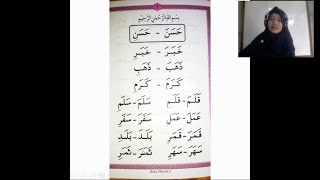 بِسْمِ اللهِ الرَّحْمٰنِ الرَّحِيْمِ
حَسَنَ - حَسَنِ
خَبَرَ - خَبَرِ
ذَهَبَ - ذَهَبِ
كَرَمَ - كَرَمِ
قَلَمَ - قَلَمِ سَلَمَ - سَلَمِ
عَمَلَ - عَمَلِ سَفَرَ - سَفَرِ
قَمَرَ - قَمَرِ بَلَدَ - بَلَدِ
سَهَرَ - سَهَرِ ثَمَرَ - ثَمَرِ